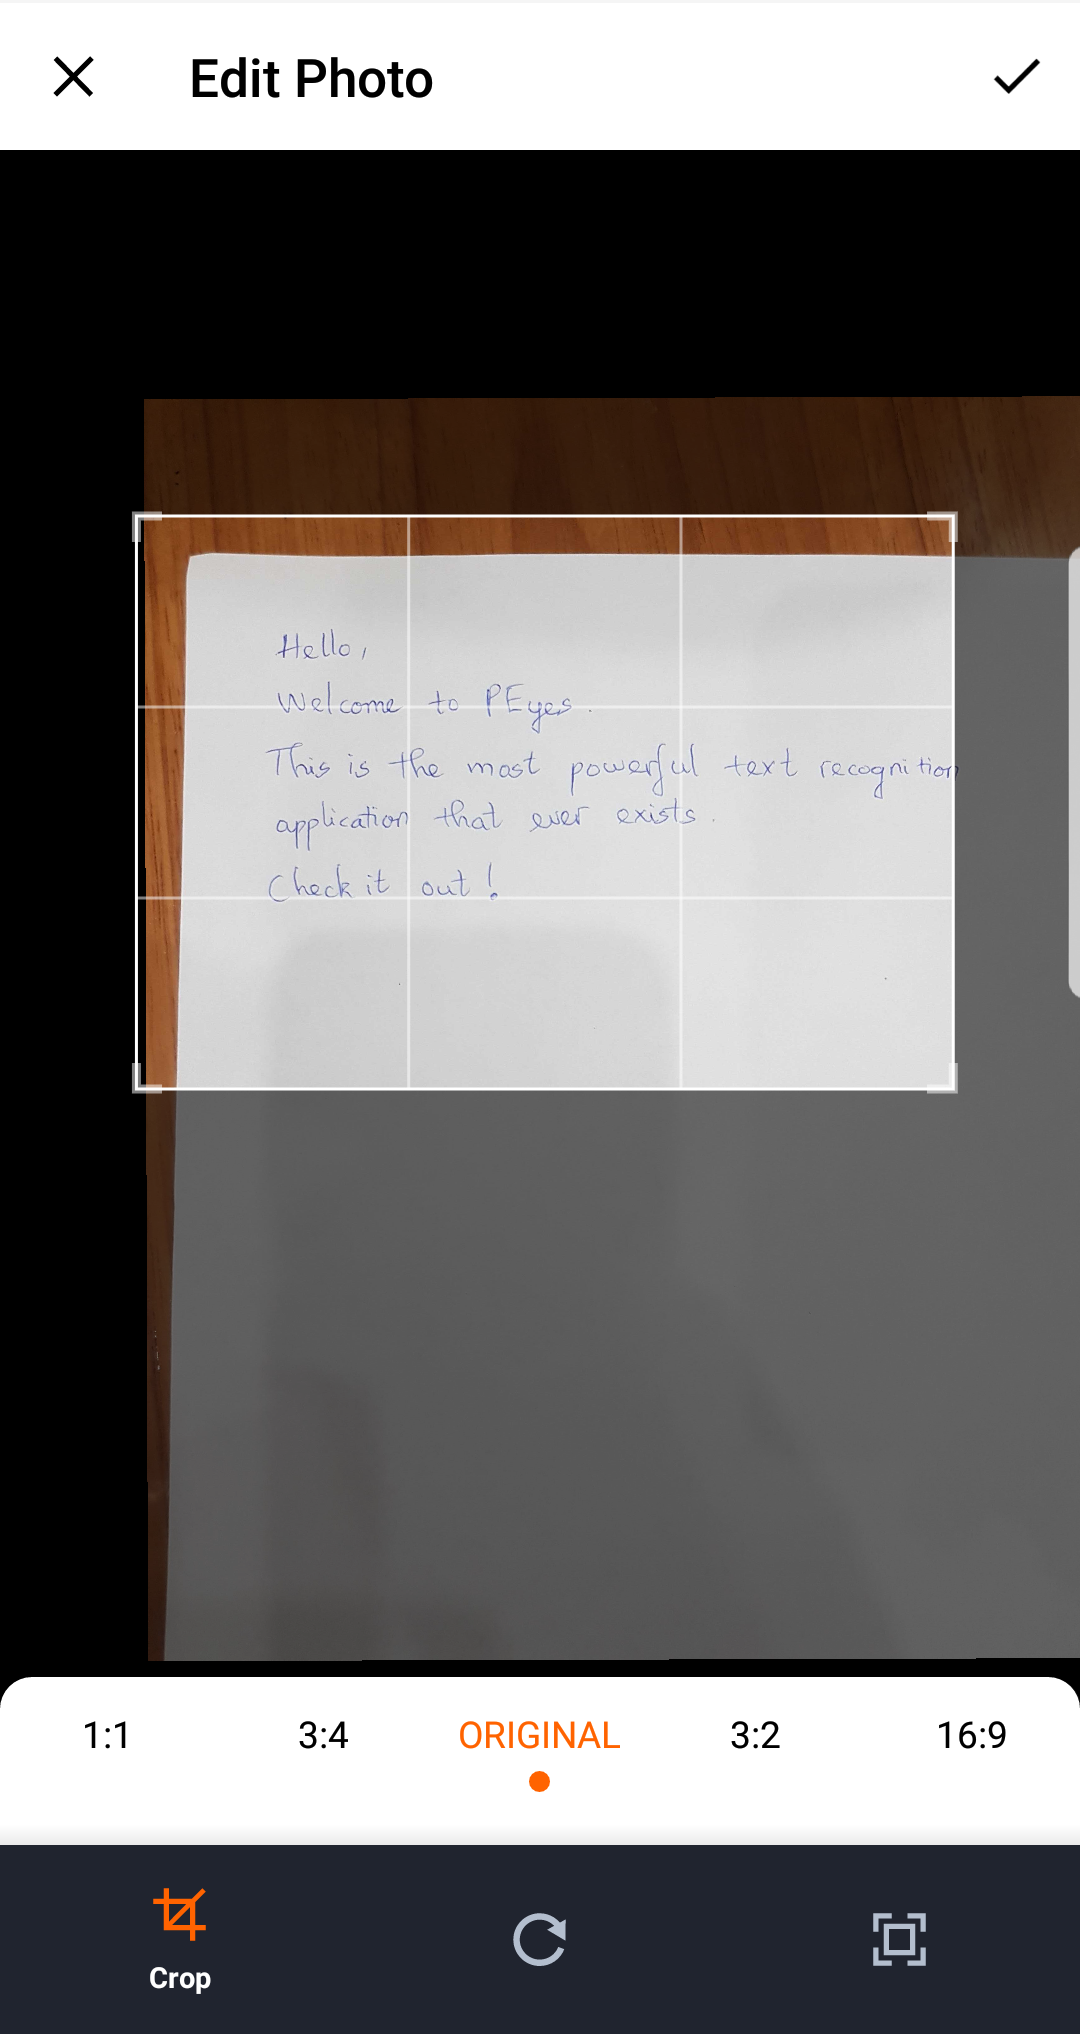 Edit Photo
Hello,
Welcome to PEyes.
This is the most powerful text recognition
application that ever exists.
Check it out!
1:1 3:4 ORIGINAL 3:2 16:9
Crop